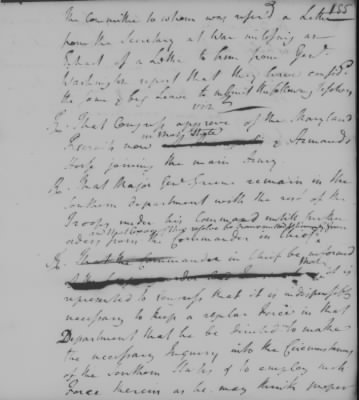 155
The Committee to whom was referd a Letter
from the Secretary at War inclosing an
Extract of a Letter to him from Genl
Washington report that they have considd
the same & beg leave to submit the following resolves
viz
Rd. That Congress approve of the Maryland
in that State
Recruits now & Armands
Horse joining the main Army.
Rd. That Major Genl Greene remain in the
southern department with the rest of the
Troops under his Command untill further
orders from the Commander in Chief.
Rd. That the Commander in Chief be informed
that
it is
represented to Congress that it is indispensibly
necessary to keep a regular Force in that
Department that he be directed to make
the necessary Inquiry into the Circumstances
of the southern States & to employ such
Force therein as he may think proper